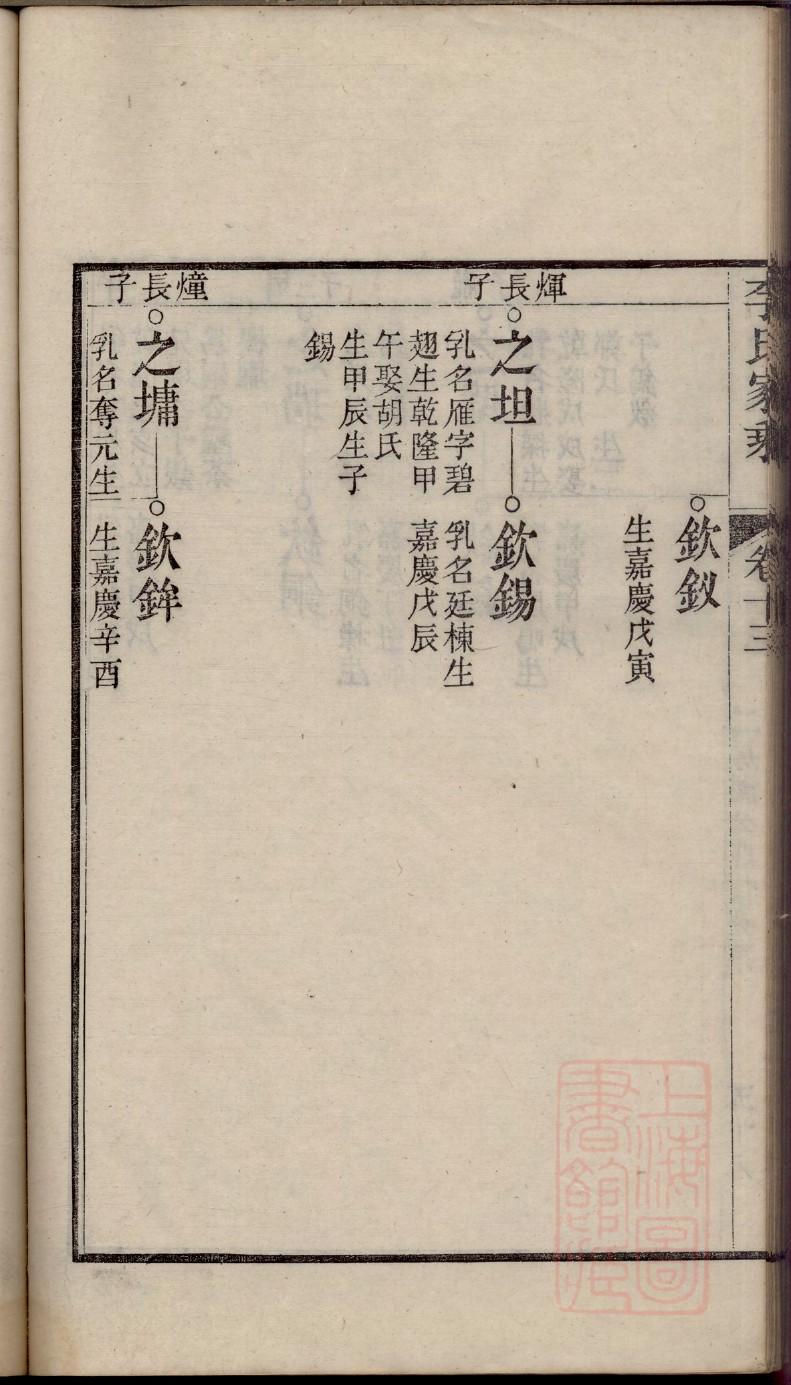 李氏家乘
卷十三
欽釵
生嘉慶戊寅
煇長子
之坦
乳名雁字碧
翹生乾隆甲
午娶胡氏
生甲辰生子
錫
欽錫
乳名廷棟生
嘉慶戊辰
燑長子
之墉
乳名奪元生
欽鉾
生嘉慶辛酉
上海圖
書館藏